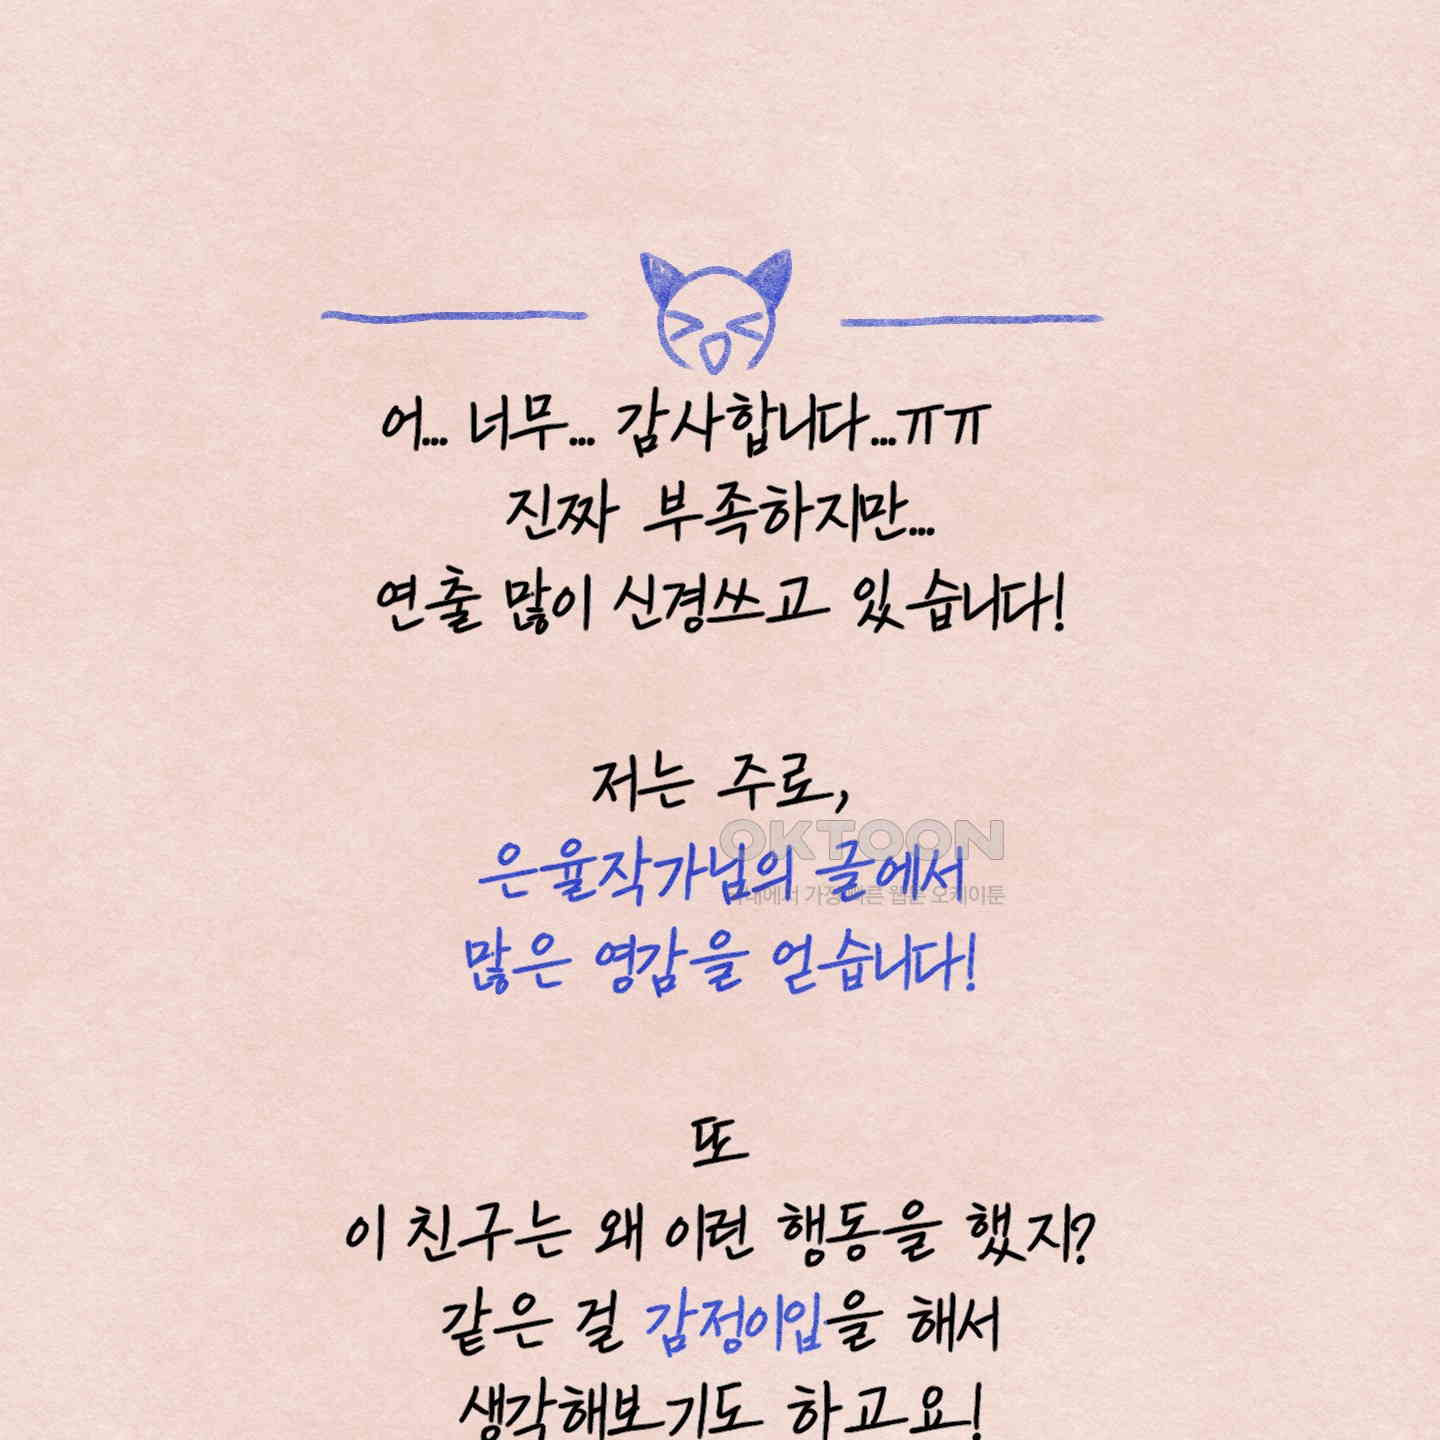 어... 너무... 감사합니다...ㅠㅠ
진짜 부족하지만...
연출 많이 신경쓰고 있습니다!
저는 주로,
OKTOON
은율작가님의 글에서
가장 빠른 웹툰 오케이툰
많은 영감을 얻습니다!
또
이 친구는 왜 이런 행동을 했지?
같은 걸 감정이입을 해서
생각해보기도 하고요!